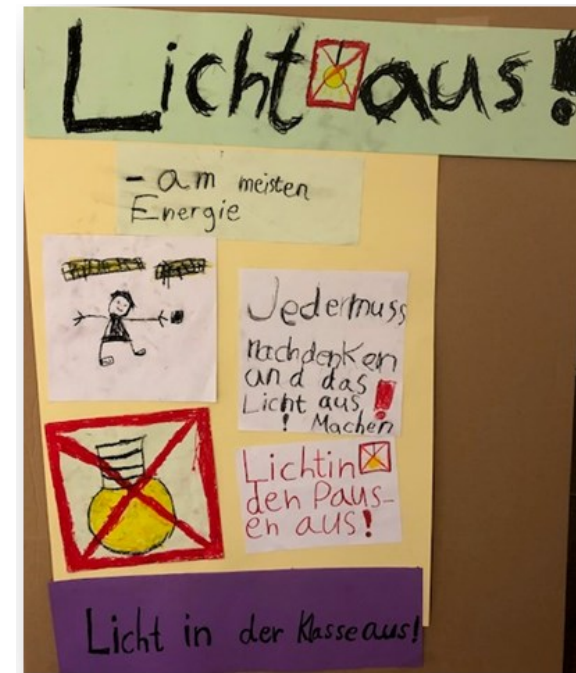 Licht aus!
- am meisten
Energie
Jedermuss
nachdenken
und das
Licht aus !
! Machen
Licht in
den Paus-
en aus!
Licht in der Klasse aus!